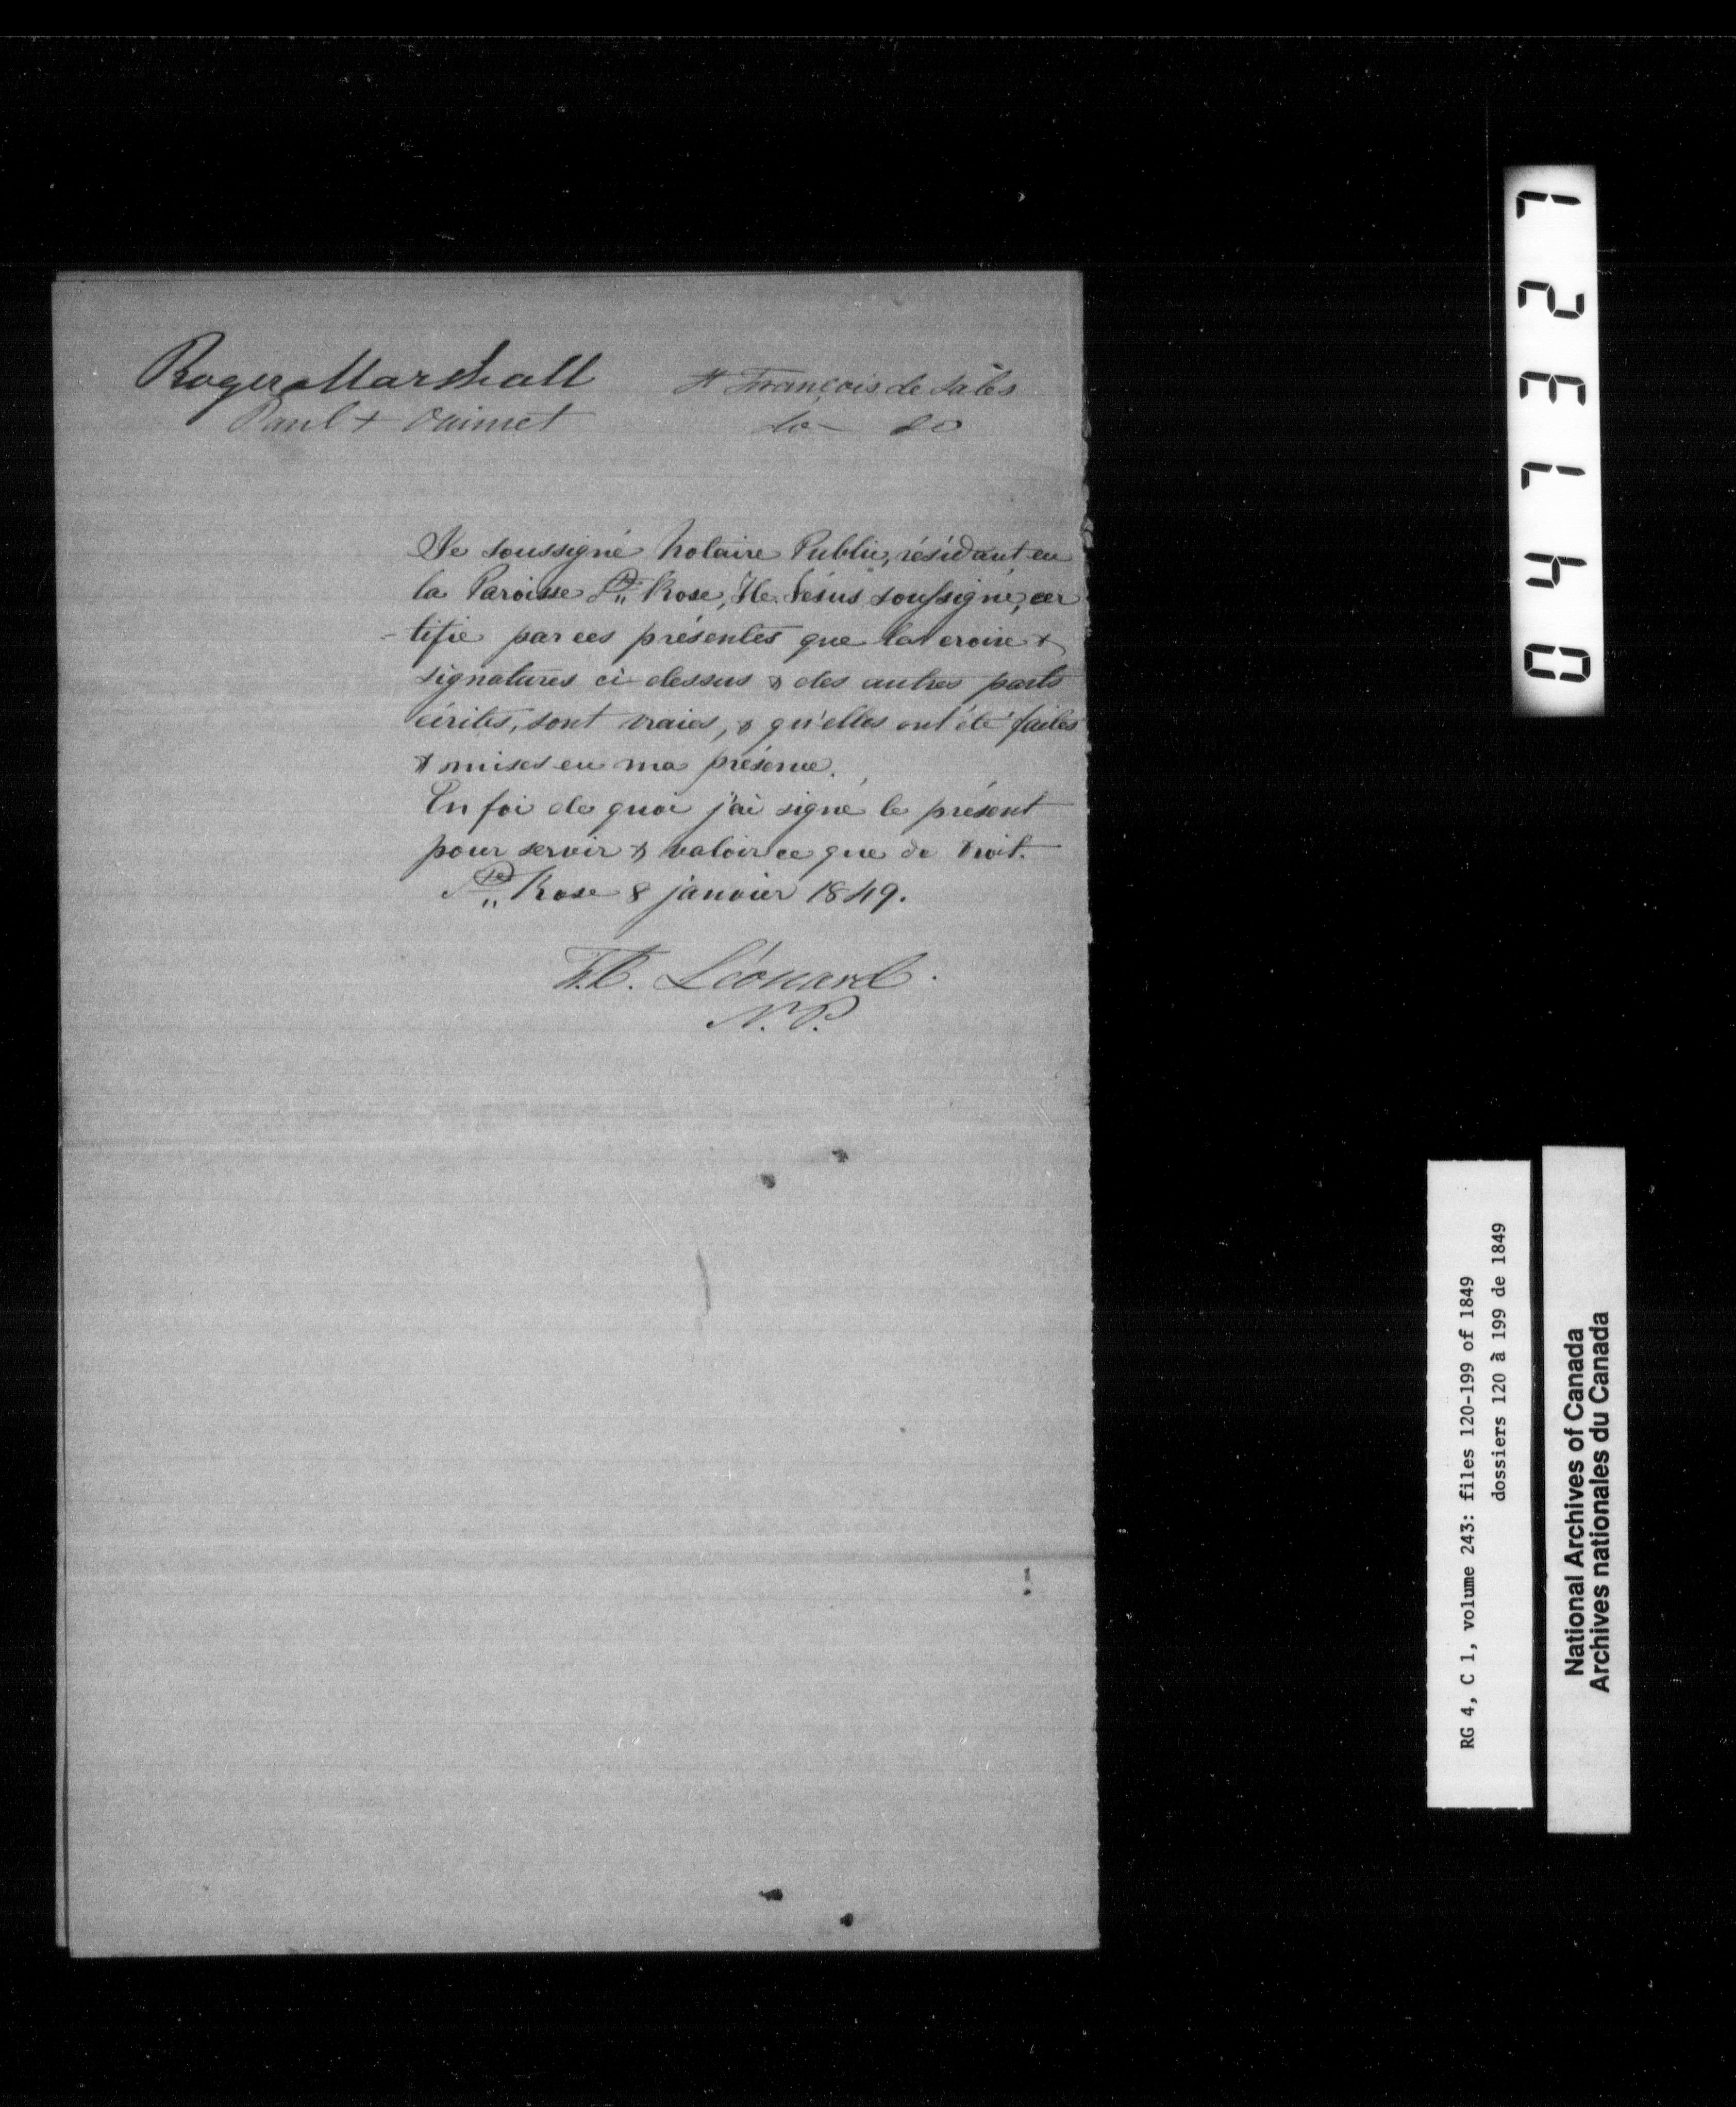 Roger Marshall St François de Sales
Paul + Ouimet do - do
Je soussigné Notaire Public, résidant en
la Paroisse Ste Rose, Ile Jésus soussigné, cer
-tifie par ces présentes que la croix &
signatures ci-dessus & des autres parts
écrites, sont vraies, & qu'elles ont été faites
& mises en ma présence.
En foi de quoi j'ai signé le présent
pour servir & valoir ce que de droit.
Ste Rose 8 janvier 1849.
Léonard.
N.P.
047327
RG 4, C 1, volume 243: files 120-199 of 1849
dossiers 120 à 199 de 1849
National Archives of Canada
Archives nationales du Canada